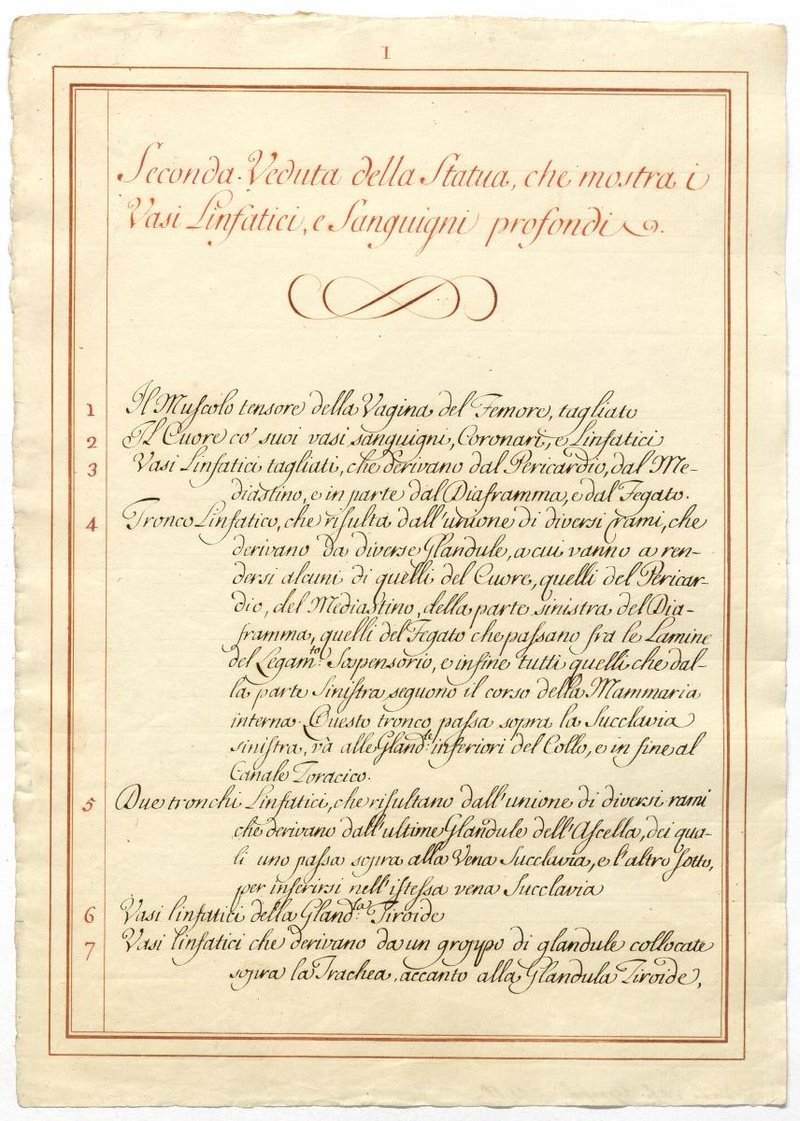 1
Seconda Veduta della Statua, che mostra i
Vasi Linfatici, e Sanguigni profondi.
1 Il Muscolo tensore della Vagina del Femore, tagliato
2 Il Cuore co' suoi vasi sanguigni, Coronari, e Linfatici
3 Vasi Linfatici tagliati, che derivano dal Pericardio, dal Me-
diastino, e in parte dal Diaframma, e dal Fegato.
4 Tronco Linfatico, che risulta dall'unione di diversi rami, che
derivano da diverse Glandule, a cui vanno a ren-
dersi alcuni di quelli del Cuore, quelli del Pericar-
dio, del Mediastino, della parte sinistra del Dia-
framma, quelli del Fegato che passano fra le Lamine
del Legam.to Sospensorio, e infine tutti quelli che dal-
la parte sinistra seguono il corso della Mammaria
interna. Questo tronco passa sopra la Succlavia
sinistra, và alle Gland.le inferiori del Collo, e in fine al
Canale Toracico.
5 Due tronchi Linfatici, che risultano dall'unione di diversi rami
che derivano dall'ultime Glandule dell'Ascella, dei qua-
li uno passa sopra alla Vena Succlavia, e l'altro sotto,
per inserirsi nell'istessa vena Succlavia
6 Vasi linfatici della Gland.la Tiroide
7 Vasi linfatici che derivano da un groppo di glandule collocate
sopra la Trachea, accanto alla Glandula Tiroide,